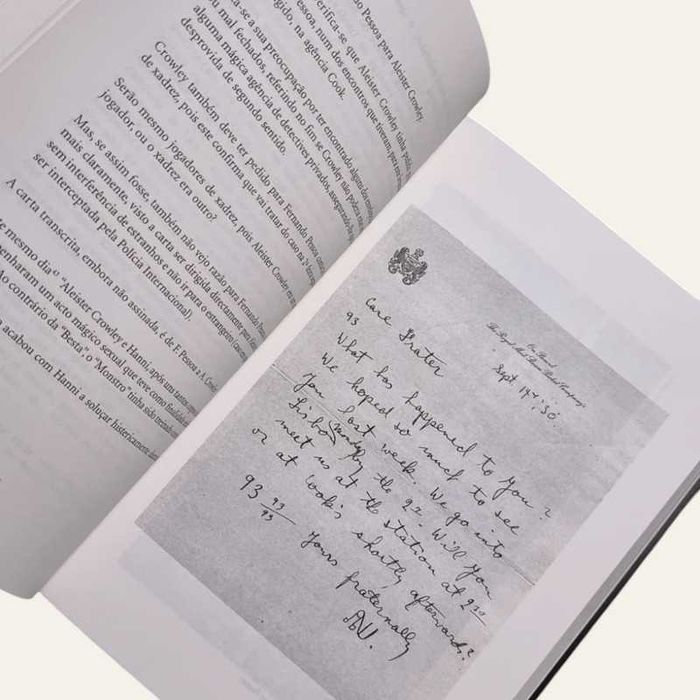 do Pessoa para Aleister Crowley,
verifica-se que Aleister Crowley tinha
Pessoa, num dos encontros que tiveram, para
-se a sua preocupação por ter encontrado alguns
mal fechados, referindo no fim se Crowley não poderia
gido, na agência Cook.
alguma mágica agência de detectives privados, assegurando
desprovida de segundo sentido.
Crowley também deve ter pedido para Fernando Pessoa
de xadrez, pois este confirma que vai tratar do caso na 2ª
Serão mesmo jogadores de xadrez, pois Aleister Crowley era
jogador, ou o xadrez era outro?
Mas, se assim fosse, também não vejo razão para Fernando
mais claramente, visto a carta ser dirigida directamente para
sem interferência de estranhos e não ir para o estrangeiro
ser interceptada pela Polícia Internacional).
A carta transcrita, embora não assinada, é de F. Pessoa a A.
e mesmo dia "Aleister Crowley e Hanni, após uns tantos
enharam um acto mágico sexual que teve como finalidade
Ao contrário da "Besta", o "Monstro" tinha sido
acabou com Hanni a soluçar histericamente
On Board
The Royal Mail Steam Packet Company
Sept 14, '30.
Care Frater
93
What has happened to you?
We hoped so much to see
you last week. We go into
Lisbon Monday the 22. Will you
meet us at the station at 2.30
or at Cook's shortly afterwards?
93 93/93
Yours fraternally